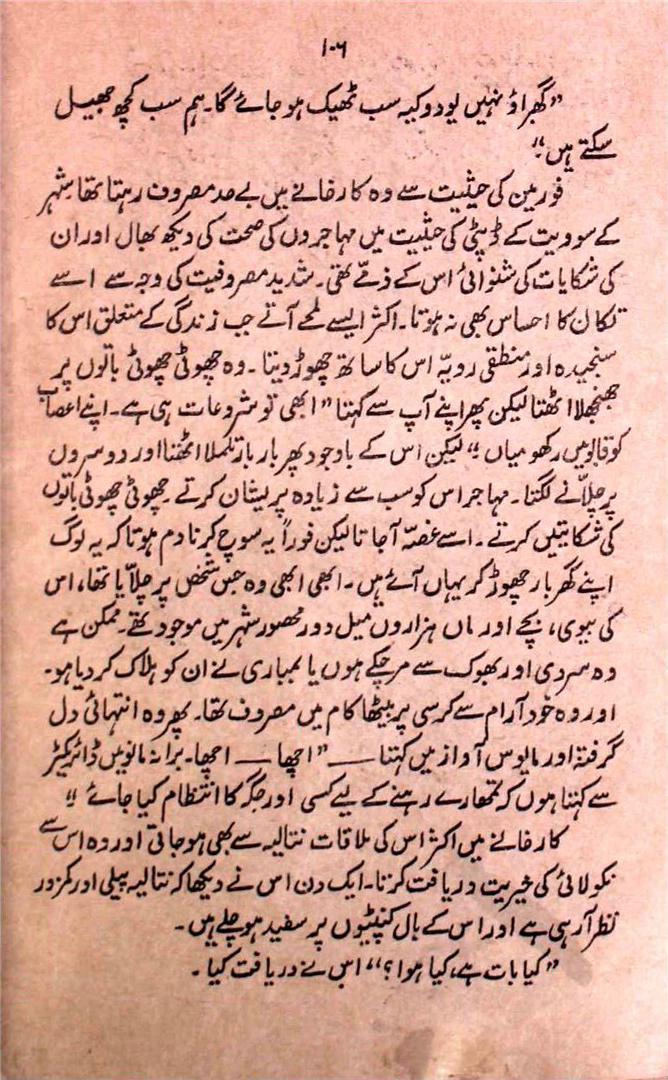 ۱۰۶
”گھبراؤ نہیں یودوکیہ سب ٹھیک ہو جائے گا۔ ہم سب کچھ جھیل
سکتے ہیں۔“
فورمین کی حیثیت سے وہ کارخانے میں بے حد مصروف رہتا تھا۔ شہر
کے سوویت کے ڈپٹی کی حیثیت میں مہاجروں کی صحت کی دیکھ بھال اور ان
کی شکایات کی شنوائی اس کے ذمّے تھی۔ شدید مصروفیت کی وجہ سے اسے
تکان کا احساس بھی نہ ہوتا۔ اکثر ایسے لمحے آتے جب زندگی کے متعلق اس کا
سنجیدہ اور منطقی رویہّ اس کا ساتھ چھوڑ دیتا۔ وہ چھوٹی چھوٹی باتوں پر
جھنجھلا اٹھتا لیکن پھر اپنے آپ سے کہتا ”ابھی تو شروعات ہی ہے۔ اپنے اعصاب
کو قابو میں رکھو میاں“ لیکن اس کے باوجود پھر بار بار تلملا اٹھتا اور دوسروں
پر چلاّنے لگتا۔ مہاجر اس کو سب سے زیادہ پریشان کرتے۔ چھوٹی چھوٹی باتوں
کی شکایتیں کرتے۔ اسے غصہّ آجاتا لیکن فوراً یہ سوچ کر نادم ہوتا کہ یہ لوگ
اپنے گھر بار چھوڑ کر یہاں آئے ہیں۔ ابھی ابھی وہ جس شخص پر چلاّیا تھا، اس
کی بیوی، بچے اور ماں ہزاروں میل دور محصور شہر میں موجود تھے۔ ممکن ہے
وہ سردی اور بھوک سے مر چکے ہوں یا بمباری نے ان کو ہلاک کر دیا ہو۔
اور وہ خود آرام سے کرسی پر بیٹھا کام میں مصروف تھا۔ پھر وہ انتہائی دل
گرفتہ اور مایوس آواز میں کہتا — ”اچھا — اچھا۔ برا نہ مانو میں ڈائرکٹر
سے کہتا ہوں کہ تمھارے رہنے کے لیے کسی اور جگہ کا انتظام کیا جائے“
کارخانے میں اکثر اس کی ملاقات نتالیہ سے بھی ہو جاتی اور وہ اس سے
نکولائی کی خیریت دریافت کرتا۔ ایک دن اس نے دیکھا کہ نتالیہ پیلی اور کمزور
نظر آرہی ہے اور اس کے بال کنپٹیوں پر سفید ہو چلے ہیں۔
”کیا بات ہے، کیا ہوا؟“ اس نے دریافت کیا۔